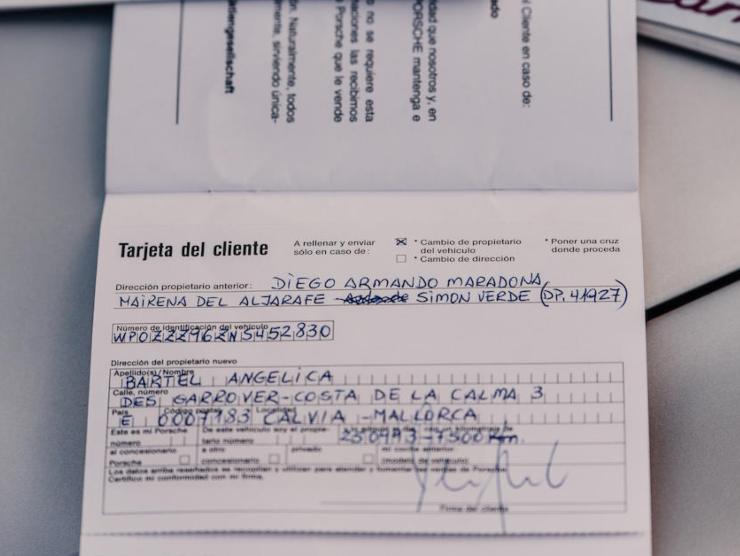 l Cliente en caso de:
ado
dad que nosotros y, en
PORSCHE mantenga e
no se requiere esta
aciones las recibimos
Porsche que le vende
n. Naturalmente, todos
mente, sirviendo única-
tiengesellschaft
Tarjeta del cliente
A rellenar y enviar
sólo en caso de:
* Cambio de propietario
del vehículo
* Cambio de dirección
* Poner una cruz
donde proceda
Dirección propietario anterior: DIEGO ARMANDO MARADONA
MAIRENA DEL ALJARAFE SIMON VERDE (DP. 41927)
Número de identificación del vehículo
WPOZZZ96ZNS452830
Dirección del propietario nuevo
Apellido(s)/Nombre
BARTEL ANGELICA
Calle, número
DES GARROVER-COSTA DE LA CALMA 3
País Código postal Localidad
E 0007183 CALVIA -MALLORCA
Este es mi Porsche De este vehículo soy el propie-
número tario número 250993-7500 Km.
al concesionario a otro privado mi coche anterior:
Porsche concesionario (modelo de vehículo)
Los datos arriba reseñados se recopilan y utilizan para atender y fomentar las ventas de Porsche.
Certifico mi conformidad con mi firma.
Firma del cliente